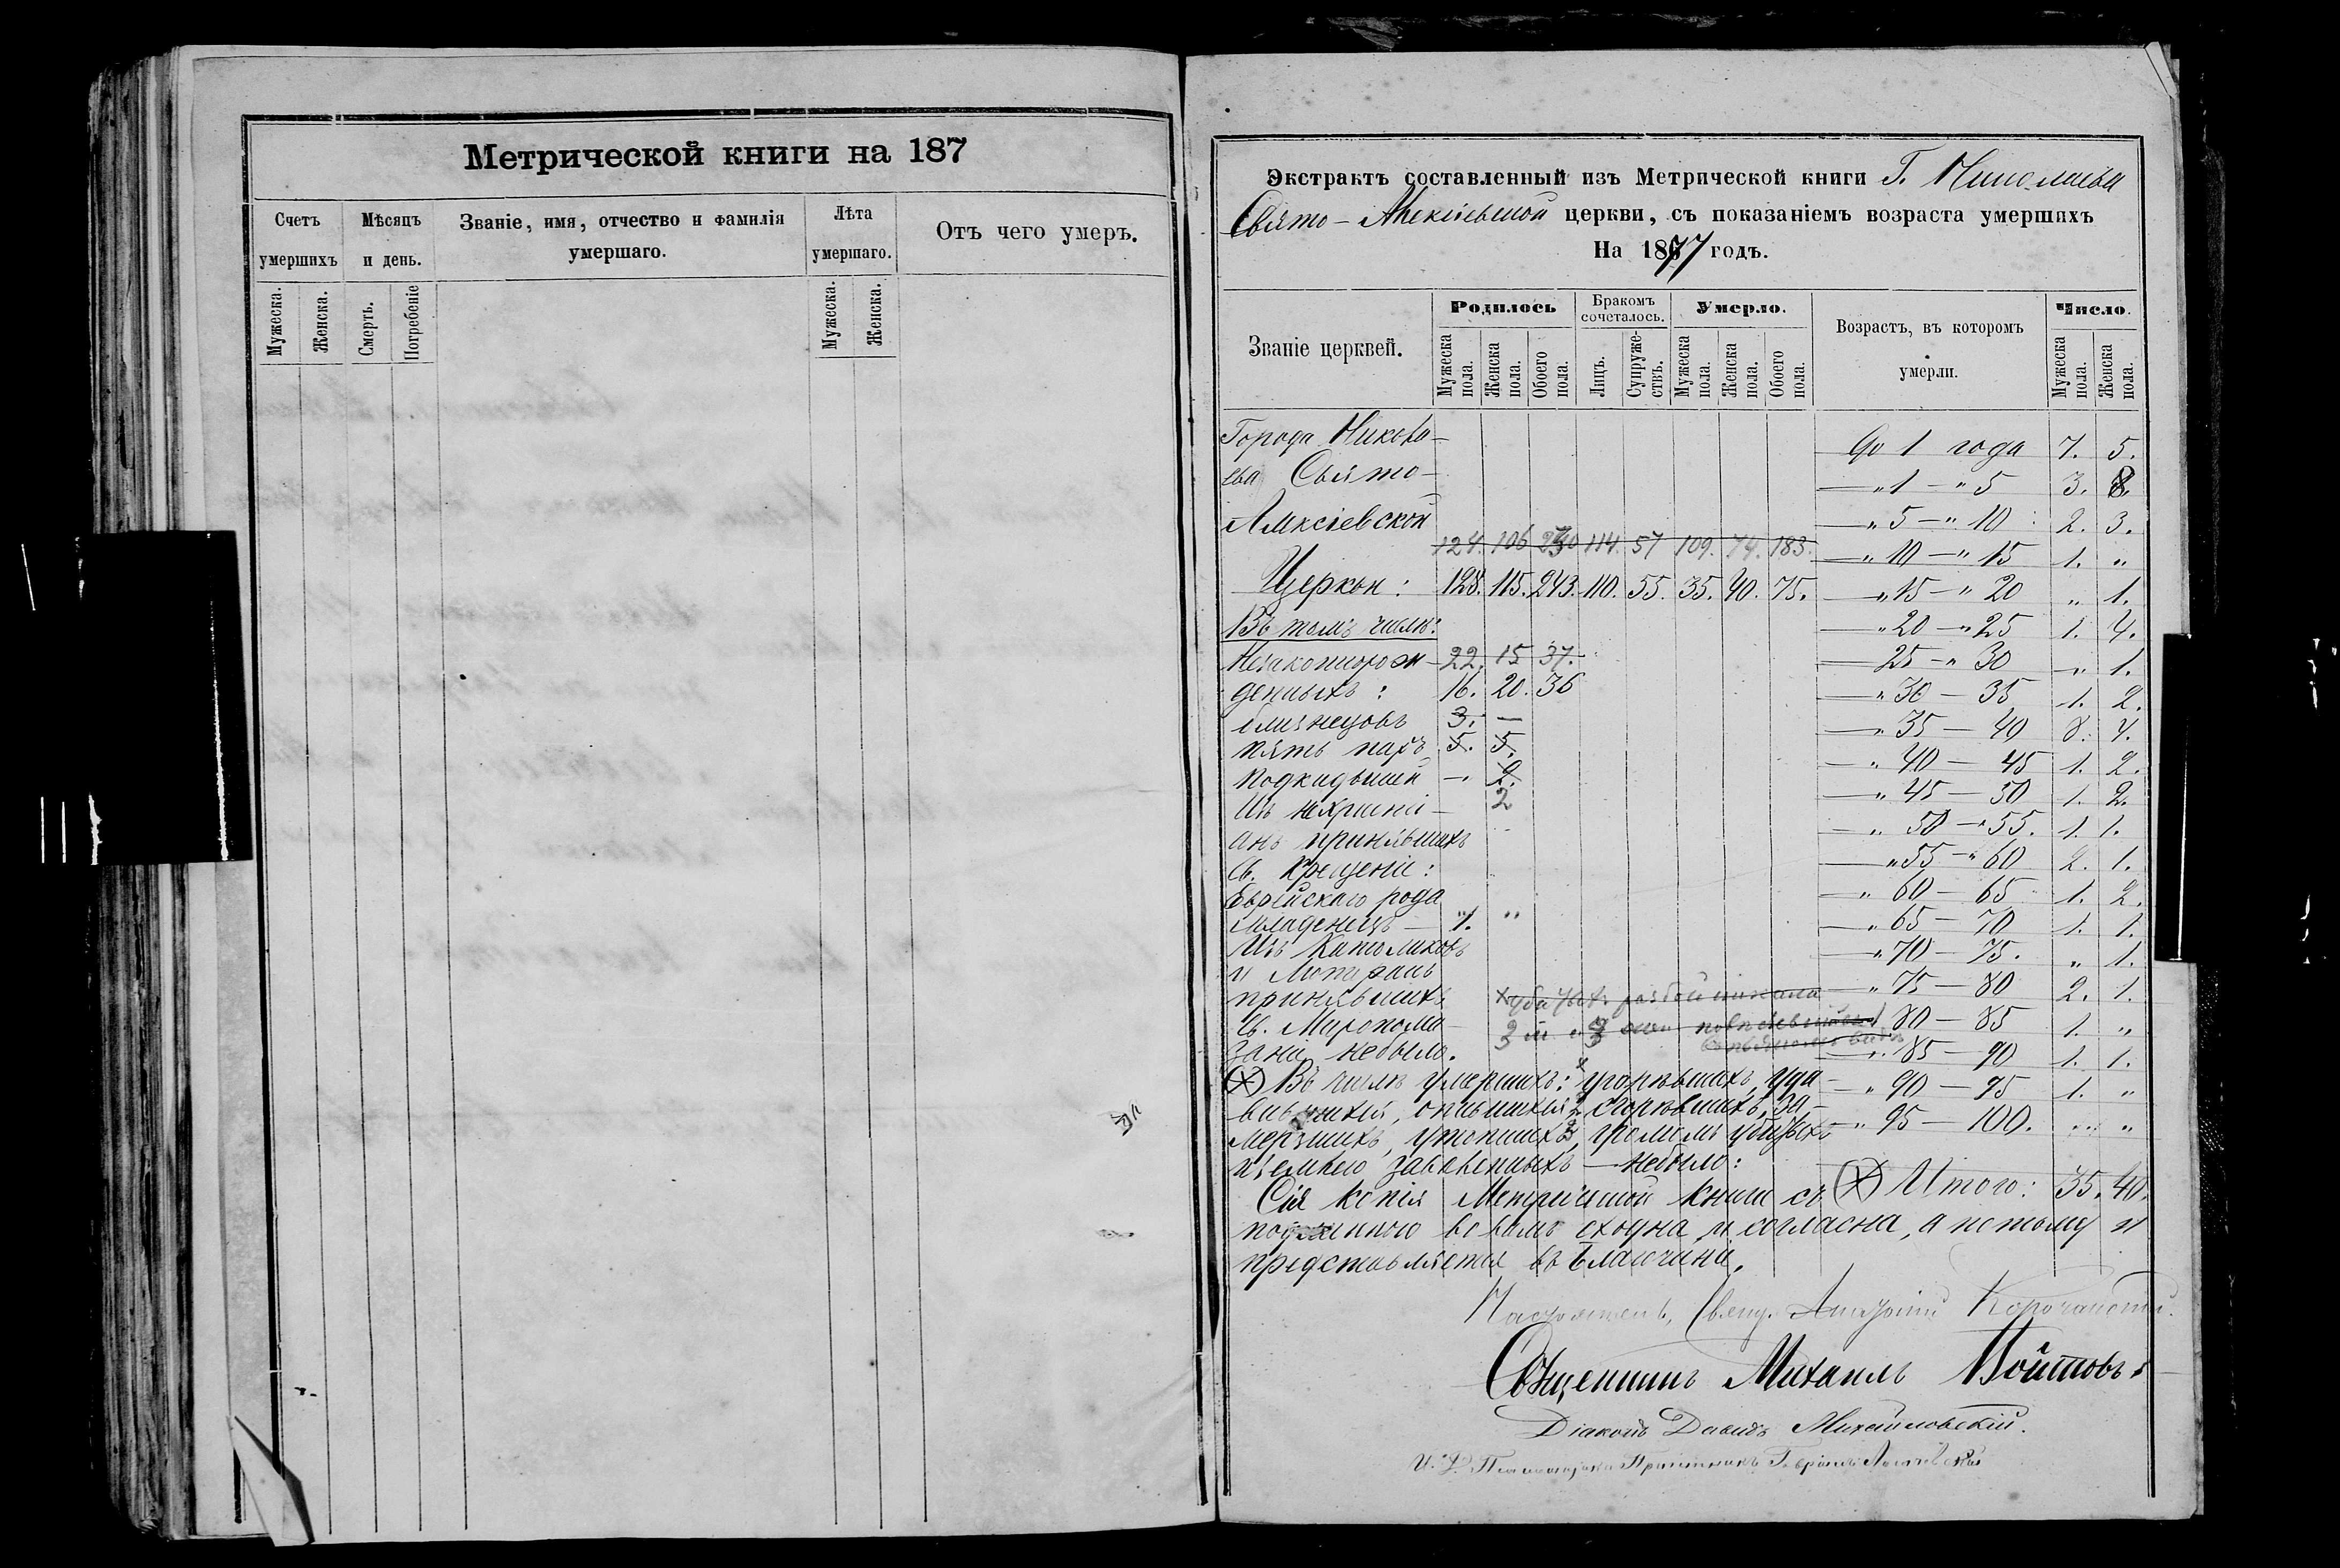 Метрической книги на 187
Счетъ умершихъ
Мѣсяцъ и день.
Званіе, имя, отчество и фамилія умершаго.
Лѣта умершаго.
Отъ чего умеръ.
Мужеска.
Женска.
Смерть.
Погребеніе
Мужеска.
Женска.
Экстрактъ составленный изъ Метрической книги Г. Николаева
Свято-Алексіевской церкви, съ показаніемъ возраста умершихъ
На 1877 годъ.
Званіе церквей.
Родилось
Бракомъ сочеталось.
Умерло.
Возрастъ, въ которомъ умерли.
Число.
Мужеска пола.
Женска пола.
Обоего пола.
Лицъ.
Супружествъ.
Мужеска пола.
Женска пола.
Обоего пола.
Мужеска пола.
Женска пола.
Города Никола-
ева Свято-
Алексіевской
124. 106 230 114. 57 109. 74. 183.
Церкви: 128. 115. 243. 110. 55. 35. 40. 75.
Въ томъ числѣ:
Незаконнорож- 22. 15 37.
денныхъ: 16. 20. 36
близнецовъ 3. —
пять паръ 5. 5.
подкидышей —. 2.
Изъ нехристі- 2
анъ принявшихъ
Св. Крещеніе:
Еврейскаго рода
младенецъ — 1. "
Изъ Католиковъ
и Лютеранъ
принявшихъ
Св. Миропома-
заніе небыло.
До 1 года 7. 5.
— " 1 — " 5 3. 8.
— " 5 — " 10 2. 3.
— " 10 — " 15 1. "
— " 15 — " 20 " 1.
— " 20 — " 25 1. 4.
— 25 — " 30 " 1.
— " 30 — 35 1. 2.
— " 35 — 40 8. 4.
— " 40 — 45 1. 2.
— " 45 — 50 1. 2.
— " 50 — " 55. 1. 1.
— " 55 — " 60 2. 1.
— " 60 — 65 1. 2.
— " 65 — 70 1. 1.
— " 70 — 75. " 1.
— " 75 — 80 2. 1.
80 — 85 1. "
— " 85 — 90 1. 1.
— " 90 — 95 1. "
— " 95 — 100. " "
Итого: 35. 40.
Въ числѣ умершихъ: угорѣвшихъ, уда-
вившихся, опившихся, сгорѣвшихъ, за-
мерзшихъ, утопшихъ, громомъ убитыхъ
и землею заваленныхъ — небыло:
Сія копія Метрической книги съ
подлинною во всемъ сходна и согласна, а потому и
представляется въ Благочиніе.
Настоятель, Свящ. Корочанскій.
Священникъ Михаилъ Войтовъ
Діаконъ Давидъ Михайловскій.